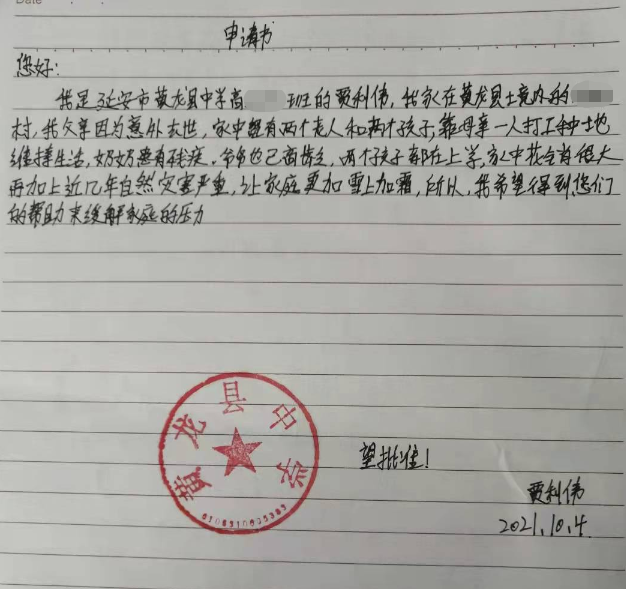 Date
申请书
您好:
我是延安市黄龙县中学高班的贾利伟,我家在黄龙县境内的
村,我父亲因为意外去世,家中里有两个老人和两个孩子,靠母亲一人打工种土地
维持生活,奶奶患有残疾,爷爷也已高龄,两个孩子都在上学,家中花令肖很大
再加上近几年自然灾害严重,让家庭更加雪上加霜,所以,我希望得到您们
的帮助来缓解家庭的压力
黄龙县中学
望批准!
贾利伟
2021.10.4